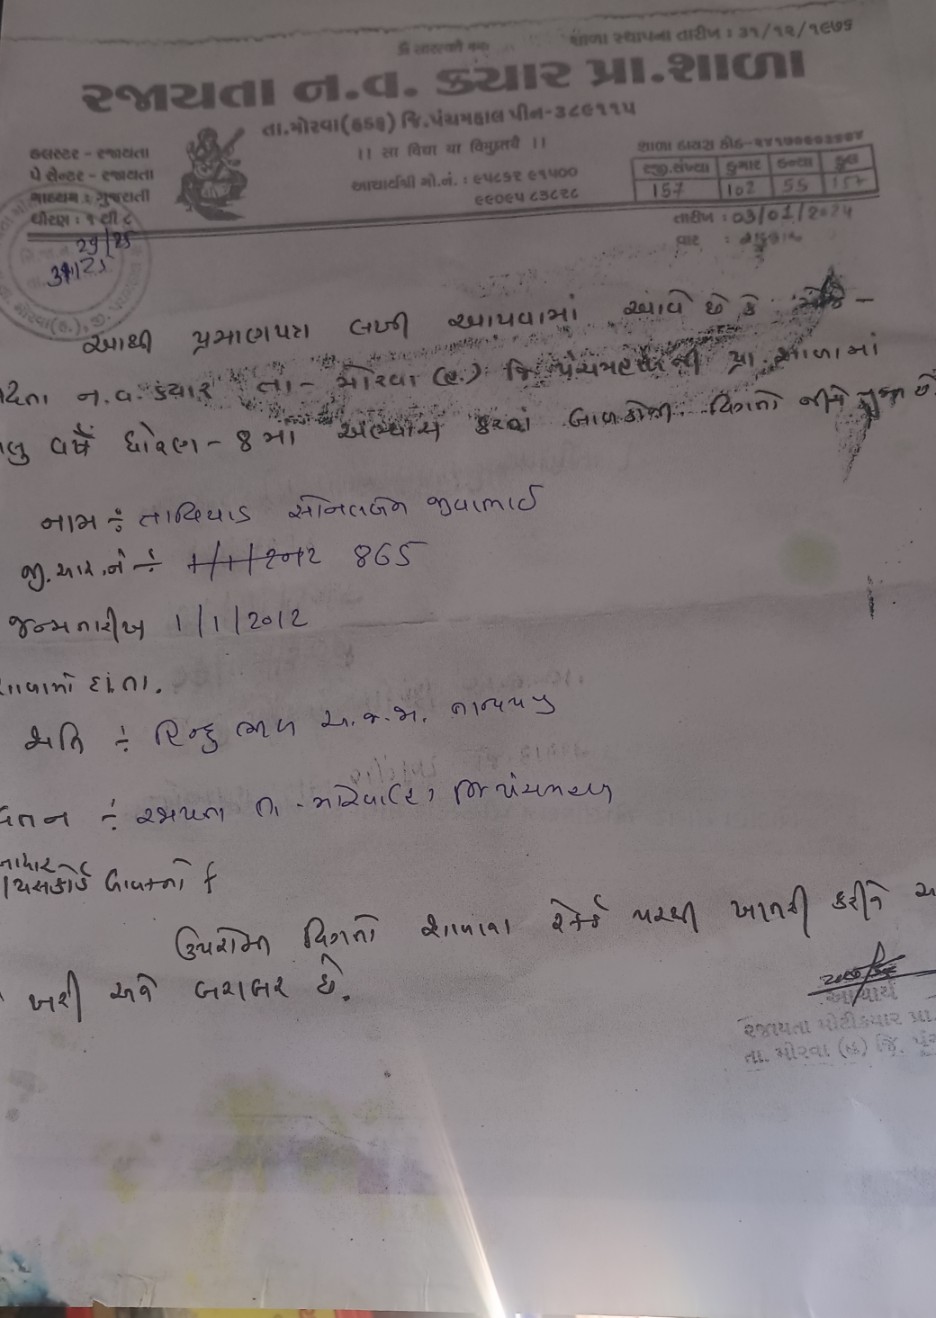 શાળા સ્થાપના તારીખ : ૩૧/૧૨/૧૯૭૧
રજાયતા ન.વ. કયાર પ્રા.શાળા
તા.મોરવા(હડફ) જિ.પંચમહાલ પીન-૩૮૯૧૧૫
।। સા વિદ્યા યા વિમુક્તયે ।।
કલસ્ટર - રજાયતા
પે સેન્ટર - રજાયતા
માધ્યમ : ગુજરાતી
ધોરણ : ૧ થી ૮
આચાર્યશ્રી મો.નં. : ૯૫૮૬૨ ૯૧૫૦૦
૯૯૦૯૫ ૮૩૮૨૮
શાળા ડાયસ કોડ-
રજી.સંખ્યા કુમાર કન્યા કુલ
157 102 55 157
તારીખ : 03/01/2024
વાર :
29/25
આથી પ્રમાણપત્ર લખી આપવામાં આવે છે કે
ન.વ. કયાર તા- મોરવા (હ.) જિ પંચમહાલની પ્રા. શાળામાં
વર્ષે ધોરણ - 8 માં અભ્યાસ કરતાં બાળકોની વિગતો નીચે મુજબ છે
નામ ÷ તાવિયાડ સોનલબેન જીવાભાઈ
જી.આર.નં ÷ 1/1/2012 865
જન્મ તારીખ 1/1/2012
જાતિ ÷ હિન્દુ
વતન ÷ રજાયતા તા. મોરવા(હ) જિ પંચમહાલ
ઉપરોક્ત વિગતો શાળાના રેકર્ડ પરથી ખાતરી કરીને
ખરી અને બરાબર છે.
આચાર્ય
રજાયતા મોટીકયાર પ્રા.
તા. મોરવા (હ) જિ.